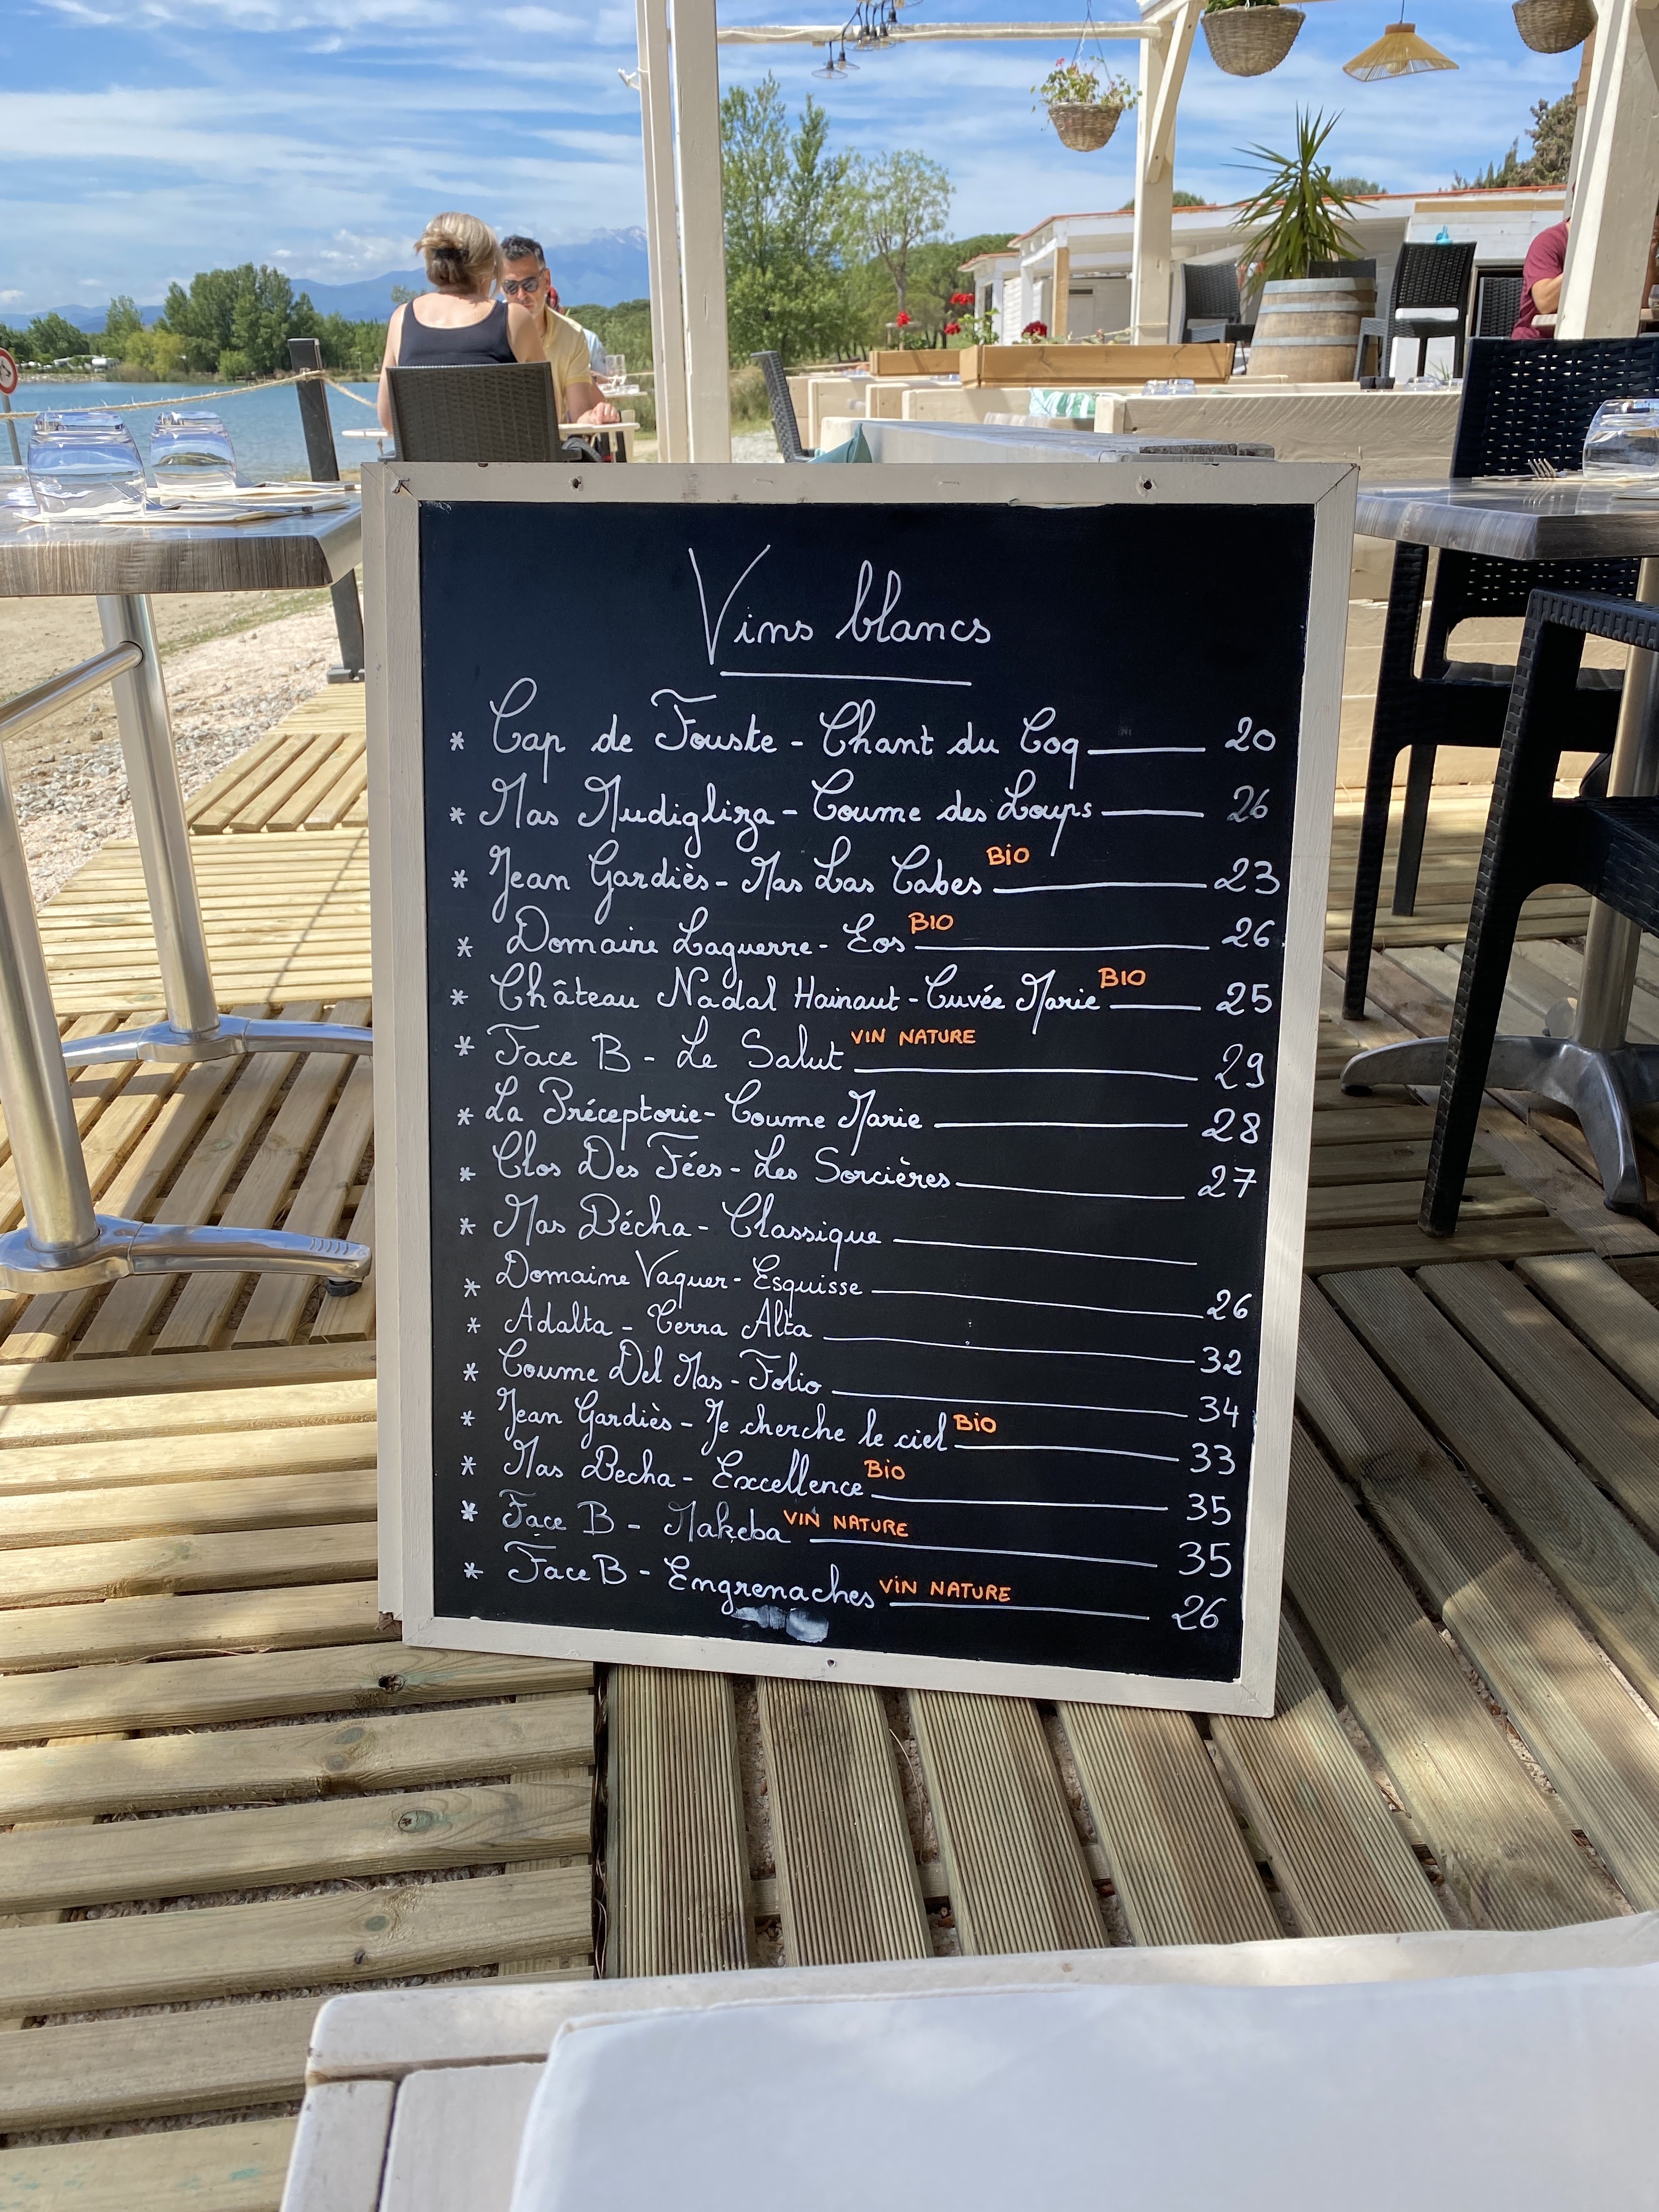 Vins blancs
* Cap de Fouste - Chant du Coq 20
* Mas Mudigliza - Coume des Loups 26
* Jean Gardiès - Mas Las Cabes BiO 23
* Domaine Laguerre - Eos BIO 26
* Château Nadal Hainaut - Cuvée Marie BIO 25
* Face B - Le Salut VIN NATURE 29
* La Préceptorie - Coume Marie 28
* Clos Des Fées - Les Sorcières 27
* Mas Bécha - Classique
* Domaine Vaquer - Esquisse 26
* Adalta - Terra Alta 32
* Coume Del Mas - Folio 34
* Jean Gardiès - Je cherche le ciel BiO 33
* Mas Becha - Excellence BiO 35
* Face B - Makeba VIN NATURE 35
* Face B - Engrenaches ViN NATURE 26